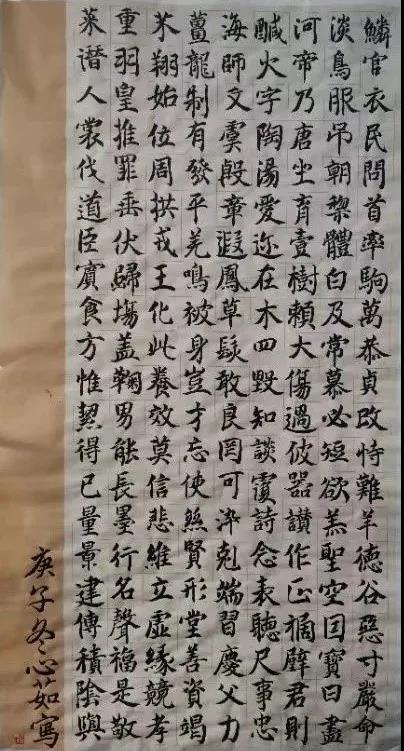 菜重芥薑海鹹河淡鱗
潛羽翔龍師火帝鳥官
人皇始制文字乃服衣
裳推位有虞陶唐吊民
伐罪周發殷湯坐朝問
道垂拱平章愛育黎首
臣伏戎羌遐邇壹體率
賓歸王鳴鳳在樹白駒
食場化被草木賴及萬
方蓋此身髮四大常恭
惟鞠養豈敢毀傷慕貞
絜男效才良知過必改
得能莫忘罔談彼短恃
已長信使可覆器欲難
量墨悲絲染詩讃羔羊
景行維賢剋念作聖德
建名立形端表正空谷
傳聲虛堂習聽禍因惡
積福緣善慶尺璧寶寸
陰是競資父事君曰嚴
與敬孝竭力忠則盡命
庚子冬心茹寫